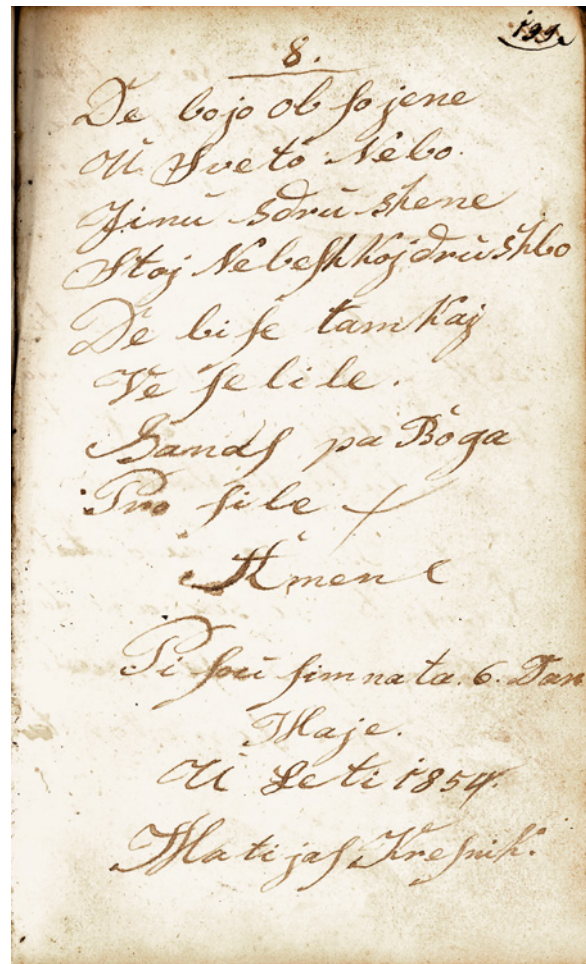 199.
8.
De bojo obſojene
U Sveto Nebo.
Jinu sdru shene
Stoj Nebeſhkoj drushbo
De bi ſe tam kaj
Ve ſe li le.
Sa naſ pa Boga
Pro ſi le
Amen
Pi ſou ſim na ta. 6. Dan
Maje.
U Le ti 1854.
Mati jaſ Kreſnik.